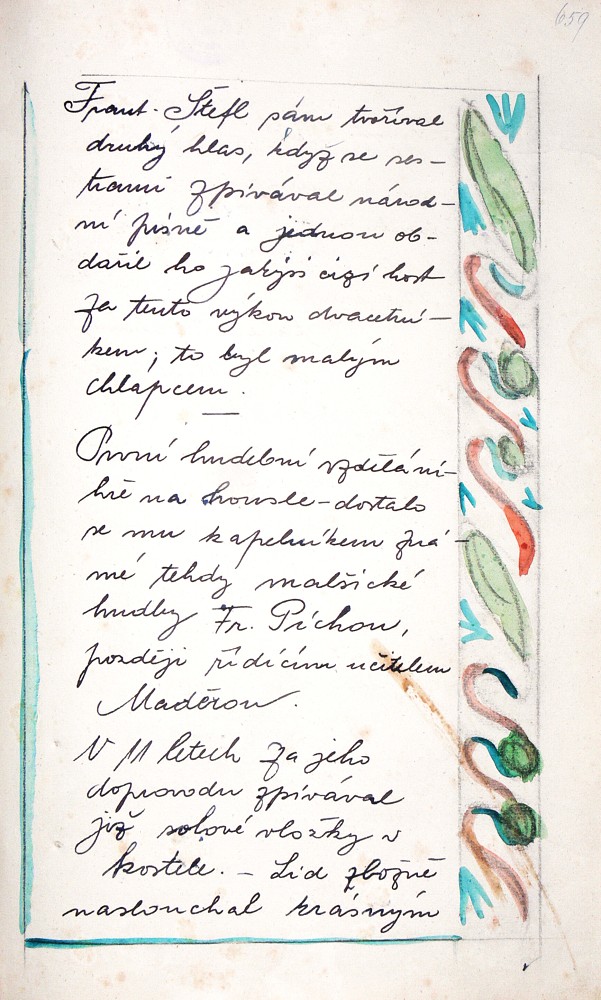 659
Frant. Štefl sám tvoříval
druhý hlas, když se ses-
trami zpívával národ-
ní písně a jednou ob-
dařil ho jakýsi cizí host
za tento výkon dvacetní-
kem; to byl malým
chlapcem.
První hudební vzdělání-
hře na housle-dostalo
se mu kapelníkem zná-
mé tehdy malšické
hudby Fr. Píchou,
později řídícím učitelem
Maděrou.
V 11 letech za jeho
doprovodu zpívával
již sólové vložky v
kostele. - Lid zbožně
naslouchal krásným